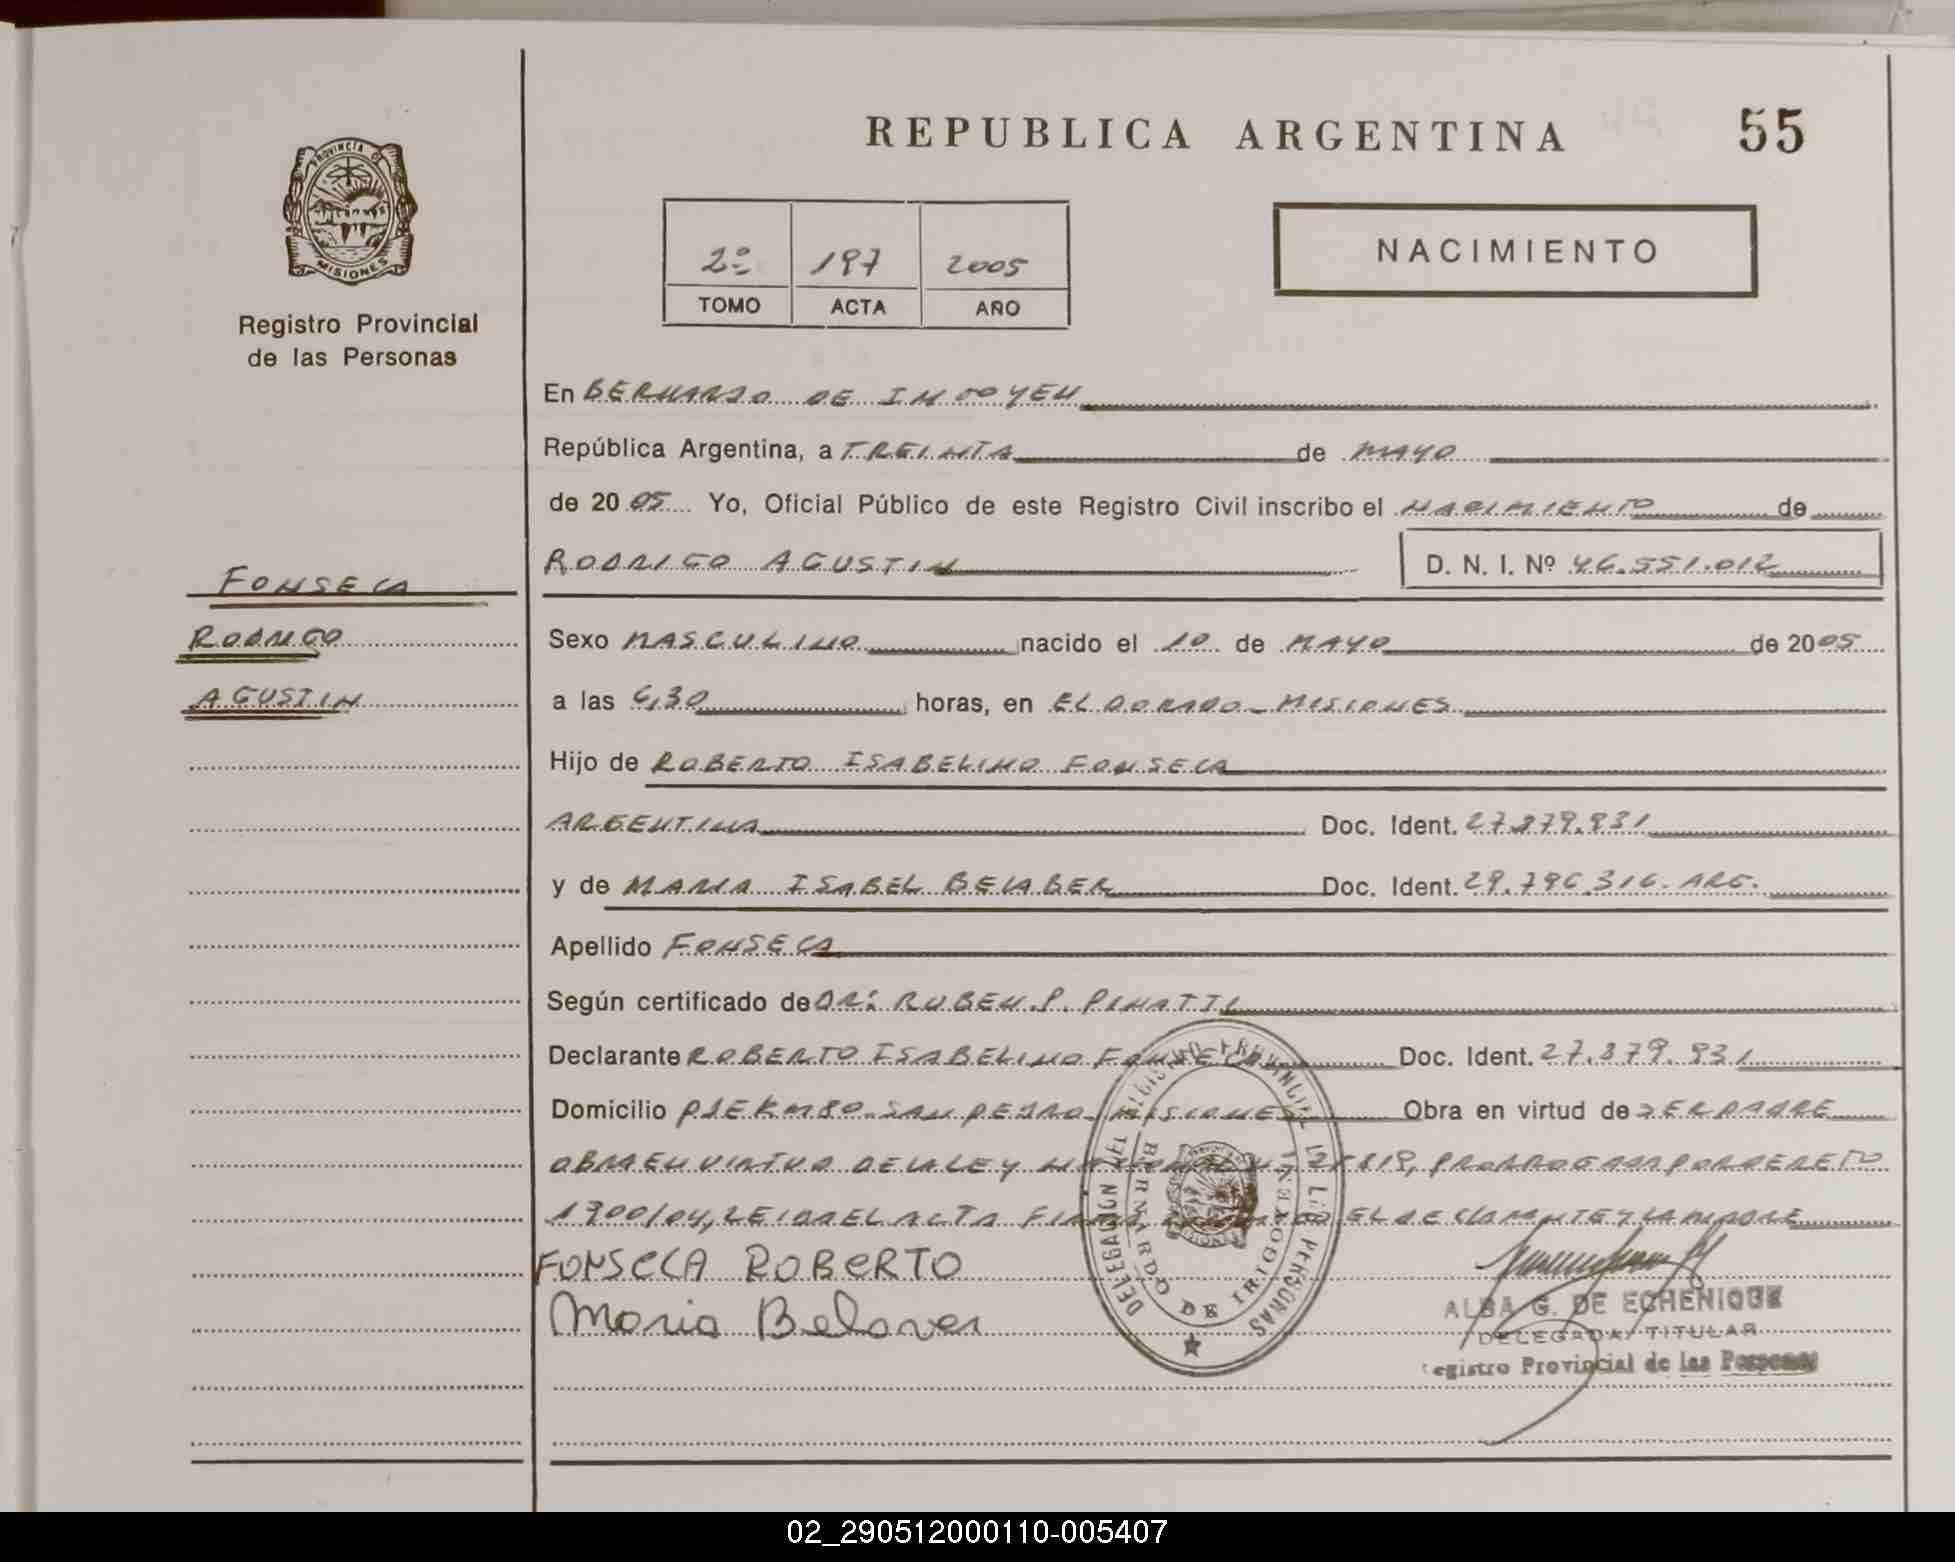 REPUBLICA ARGENTINA 55
PROVINCIA DE
MISIONES
Registro Provincial
de las Personas
2º 197 2005
TOMO ACTA AÑO
NACIMIENTO
En BERNARDO DE IRIGOYEN
República Argentina, a TREINTA de MAYO
de 2005 Yo, Oficial Público de este Registro Civil inscribo el NACIMIENTO de
RODRIGO AGUSTIN D. N. I. Nº 46.551.012
FONSECA
RODRIGO
AGUSTIN
Sexo MASCULINO nacido el 10 de MAYO de 2005
a las 6,30 horas, en ELDORADO - MISIONES
Hijo de ROBERTO ISABELINO FONSECA
ARGENTINA Doc. Ident. 27.879.931
y de MARIA ISABEL BELABER Doc. Ident. 29.796.316. ARG.
Apellido FONSECA
Según certificado de DR: RUBEN P. PINATTI
Declarante ROBERTO ISABELINO FONSECA Doc. Ident. 27.879.931
Domicilio PJE KM 80 SAN PEDRO MISIONES Obra en virtud de SER PADRE
OBRA EN VIRTUD DE LA LEY NACIONAL 25819, PRORROGADA POR DECRETO
1700/04, LEIDA EL ACTA FIRMA EL DECLARANTE Y LA MADRE
FONSECA ROBERTO
Maria Belaver
DELEGACION DEL REGISTRO PROVINCIAL DE LAS PERSONAS
BERNARDO DE IRIGOYEN
MISIONES
ALBA G. DE ECHENIQUE
DELEGADA TITULAR
egistro Provincial de las Personas
02_290512000110-005407